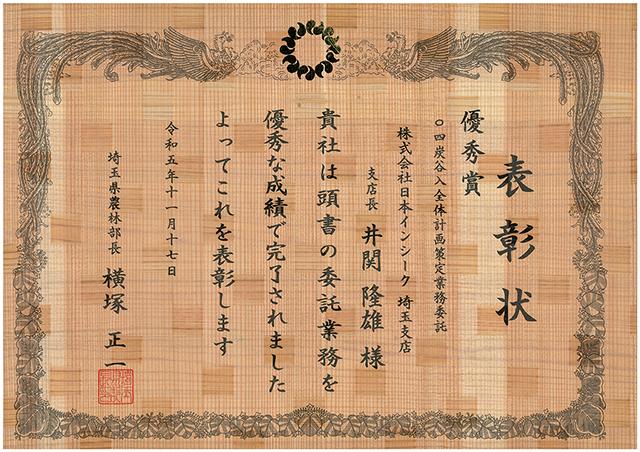 表彰状
優秀賞
〇四炭谷入全体計画策定業務委託
株式会社日本インシーク 埼玉支店
支店長 井関 隆雄 様
貴社は頭書の委託業務を
優秀な成績で完了されました
よってこれを表彰します
令和五年十一月十七日
埼玉県農林部長 横塚 正一